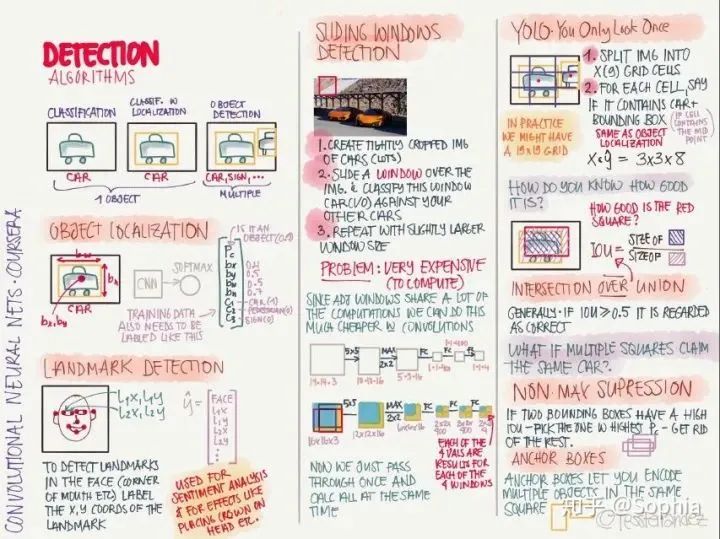 CONVOLUTIONAL NEURAL NETS · COURSERA
DETECTION
ALGORITHMS
CLASSIFICATION
CLASSIF. W
LOCALIZATION
OBJECT
DETECTION
CAR
CAR
CAR, SIGN, ...
1 OBJECT
MULTIPLE
OBJECT LOCALIZATION
bw
bh
bx,by
CAR
CNN
SOFTMAX
IS IT AN
OBJECT (0/1)
Pc
bx 0.4
by 0.5
bh 0.5
bw 0.7
C1 CAR (1)
C2 PEDESTRIAN (0)
C3 SIGN (0)
TRAINING DATA
ALSO NEEDS TO BE
LABLED LIKE THIS
LANDMARK DETECTION
L1X, L1Y
L2X, L2Y
ŷ =
FACE
L1X
L1Y
L2X
L2Y
TO DETECT LANDMARKS
IN THE FACE (CORNER
OF MOUTH ETC) LABEL
THE X,Y COORDS OF THE
LANDMARK
USED FOR
SENTIMENT ANALYSIS
& FOR EFFECTS LIKE
PLACING CROWN ON
HEAD ETC.
SLIDING WINDOWS
DETECTION
1. CREATE TIGHTLY CROPPED IMG
OF CARS
2. SLIDE A WINDOW OVER THE
IMG. & CLASSIFY THIS WINDOW
CAR(1/0) AGAINST YOUR
OTHER CARS
3. REPEAT WITH SLIGHTLY LARGER
WINDOW SIZE
PROBLEM: VERY EXPENSIVE
(TO COMPUTE)
SINCE ADJ WINDOWS SHARE A LOT OF
THE COMPUTATIONS WE CAN DO THIS
MUCH CHEAPER W CONVOLUTIONS
5x5
MAX
2x2
FC
FC
14×14×3
10×10×16
5×5×16
1×1×400
1×1×400
1×1×4
5x5
MAX
2x2
FC
FC
FC
16x16x3
12x12x16
6x6x16
2x2x
400
2x2x
400
2x2x
4
EACH OF THE
4 VALS ARE
RESULTS FOR
EACH OF THE
4 WINDOWS
NOW WE JUST PASS
THROUGH ONCE AND
CALC ALL AT THE SAME
TIME
YOLO · You Only Look Once
1. SPLIT IMG INTO
X(9) GRID CELLS
2. FOR EACH CELL, SAY
IF IT CONTAINS CAR +
BOUNDING BOX
(IF CELL
CONTAINS
THE MID
POINT
IN PRACTICE
WE MIGHT HAVE
A 19x19 GRID
SAME AS OBJECT
LOCALIZATION
= 3x3x8
HOW DO YOU KNOW HOW GOOD
IT IS?
HOW GOOD IS THE RED
SQUARE?
IOU =
SIZE OF
SIZE OF
INTERSECTION OVER UNION
GENERALLY · IF IOU ≥ 0.5 IT IS REGARDED
AS CORRECT
WHAT IF MULTIPLE SQUARES CLAIM
THE SAME CAR?
NON MAX SUPRESSION
IF TWO BOUNDING BOXES HAVE A HIGH
IOU - PICK THE ONE W HIGHEST Pc - GET RID
OF THE REST.
ANCHOR BOXES
ANCHOR BOXES LET YOU ENCODE
MULTIPLE OBJECTS IN THE SAME
SQUARE
知乎 @Sophia